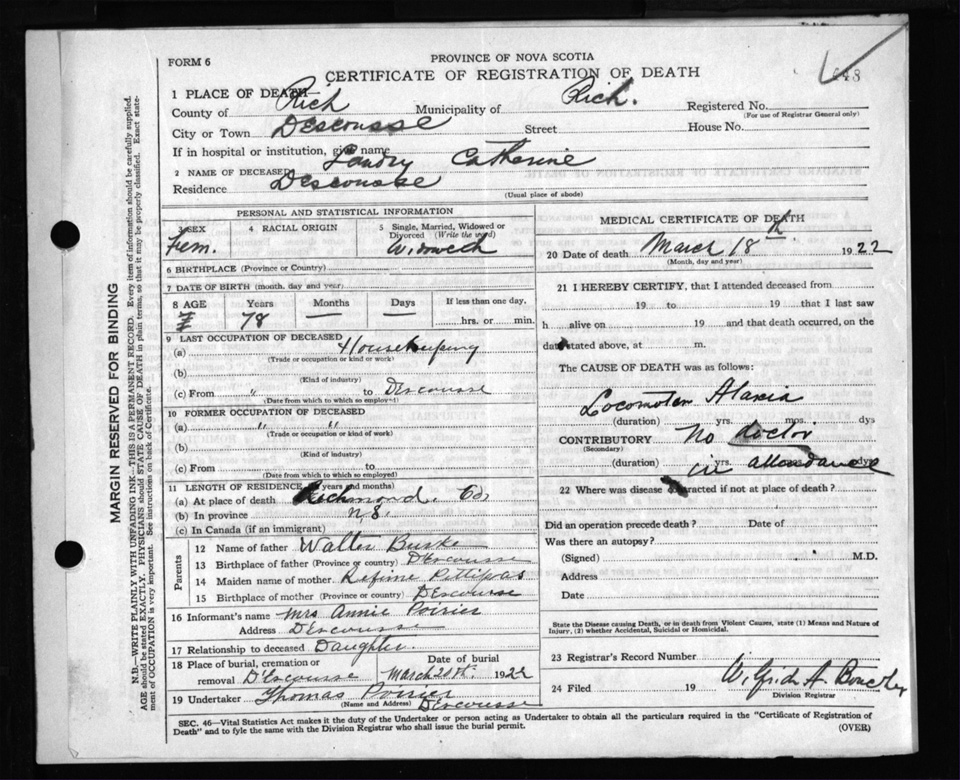 FORM 6
PROVINCE OF NOVA SCOTIA
CERTIFICATE OF REGISTRATION OF DEATH
1 PLACE OF DEATH
County of Rich Municipality of Rich. Registered No.
(For use of Registrar General only)
City or Town Descousse Street House No.
If in hospital or institution, give name
2 NAME OF DECEASED Landry Catherine
Residence Descousse
(Usual place of abode)
PERSONAL AND STATISTICAL INFORMATION
3 SEX 4 RACIAL ORIGIN 5 Single, Married, Widowed or Divorced (Write the word)
Fem.
6 BIRTHPLACE (Province or Country)
7 DATE OF BIRTH (month, day and year)
8 AGE Years Months Days If less than one day,
78 — — hrs. or min.
9 LAST OCCUPATION OF DECEASED
(a) Housekeeping
(Trade or occupation or kind or work)
(b)
(Kind of industry)
(c) From " to Descousse
(Date from which to which so employed)
10 FORMER OCCUPATION OF DECEASED
(a) " "
(Trade or occupation or kind of work)
(b)
(Kind of industry)
(c) From to
(Date from which to which so employed)
11 LENGTH OF RESIDENCE (in years and months)
(a) At place of death Richmond. Co.
(b) In province N.S.
(c) In Canada (if an immigrant)
Parents
12 Name of father Walter Burke
13 Birthplace of father (Province or country) D'Escousse
14 Maiden name of mother Pettipas
15 Birthplace of mother (Province or country) DEscousse
16 Informant's name Mrs Annie Poirier
Address DEscousse
17 Relationship to deceased Daughter
18 Place of burial, cremation or removal D'Escousse
Date of burial March 20th. 1922
19 Undertaker Thomas Poirier
(Name and Address) DEscousse
MEDICAL CERTIFICATE OF DEATH
20 Date of death March 18th 1922
(Month, day and year)
21 I HEREBY CERTIFY, that I attended deceased from
19 to 19 that I last saw
h alive on 19 and that death occurred, on
date stated above, at m.
The CAUSE OF DEATH was as follows:
Locomotor Ataxia
(duration) yrs. mos. dys
CONTRIBUTORY No doctor
(Secondary)
(duration) yrs. dys
in attendance
22 Where was disease contracted if not at place of death?
Did an operation precede death? Date of
Was there an autopsy?
(Signed) M.D.
Address
Date
State the Disease causing Death, or in death from Violent Causes, state (1) Means and Nature of Injury, (2) whether Accidental, Suicidal or Homicidal.
23 Registrar's Record Number
24 Filed 19 Wilfrid A.
Division Registrar
SEC. 46—Vital Statistics Act makes it the duty of the Undertaker or person acting as Undertaker to obtain all the particulars required in the "Certificate of Registration of
Death" and to fyle the same with the Division Registrar who shall issue the burial permit.
(OVER)
MARGIN RESERVED FOR BINDING
N.B.—WRITE PLAINLY WITH UNFADING INK—THIS IS A PERMANENT RECORD. Every item of information should be carefully supplied.
AGE should be stated EXACTLY. PHYSICIANS should STATE CAUSE OF DEATH in plain terms, so that it may be properly classified. Exact statement
of OCCUPATION is very important. See instructions on back of Certificate.